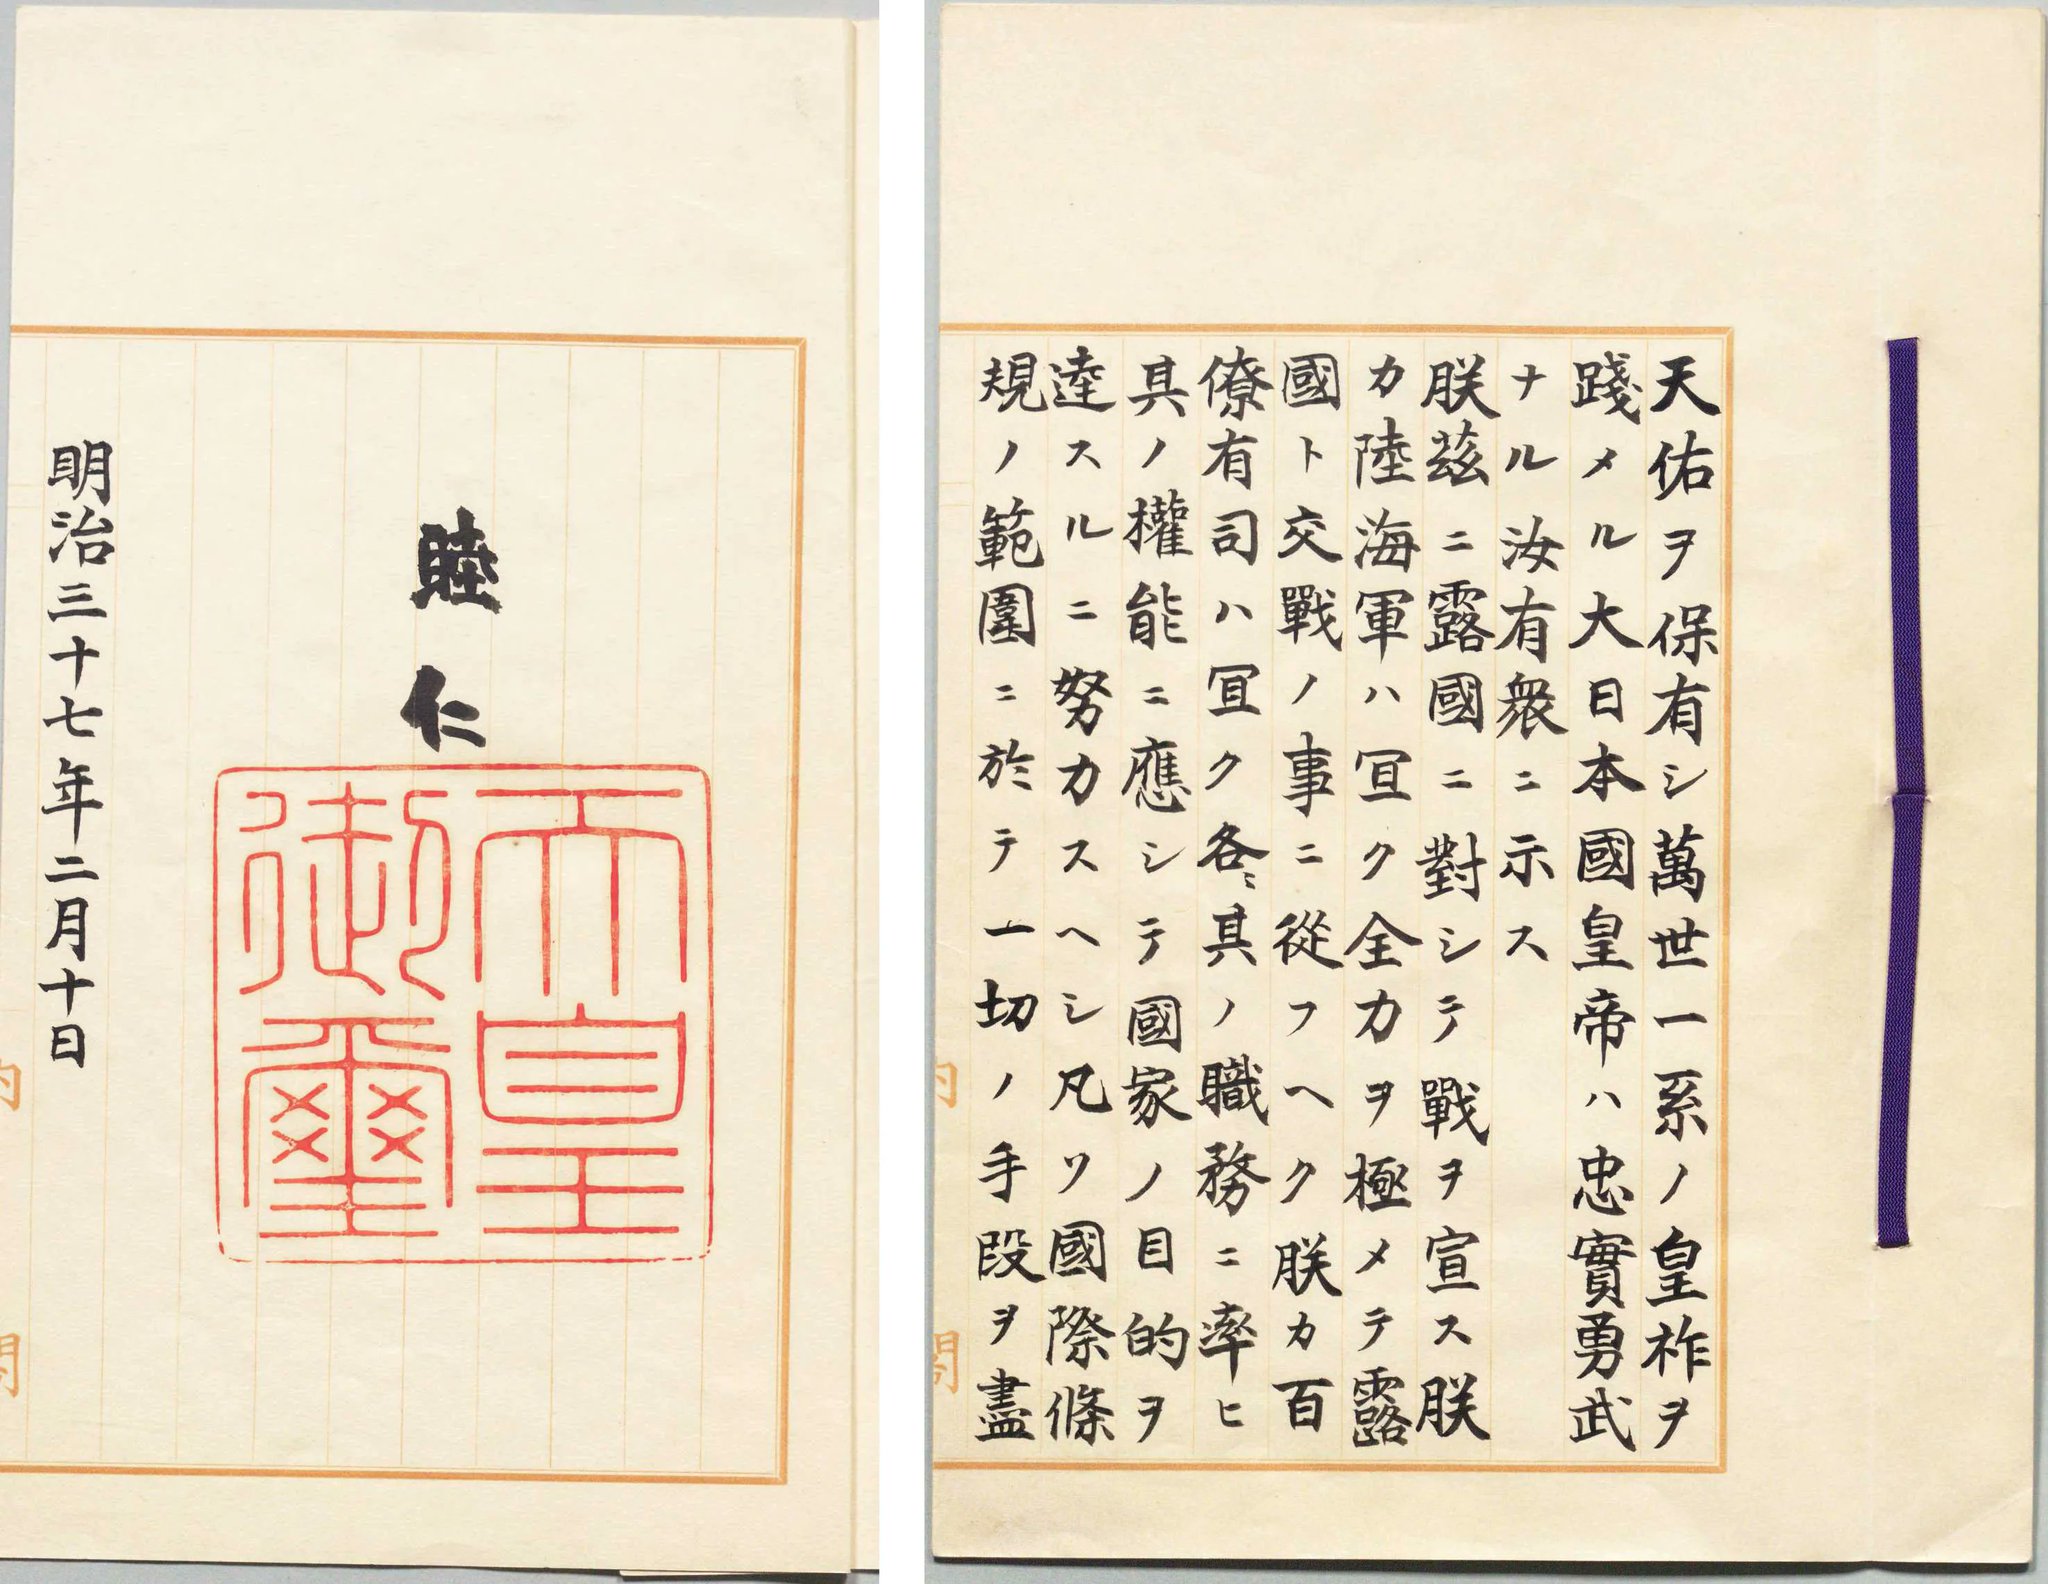 天佑ヲ保有シ萬世一系ノ皇祚ヲ
踐メル大日本國皇帝ハ忠實勇武
ナル汝有衆ニ示ス
朕茲ニ露國ニ對シテ戰ヲ宣ス朕
カ陸海軍ハ宜ク全力ヲ極メテ露
國ト交戰ノ事ニ從フヘク朕カ百
僚有司ハ宜ク各〻其ノ職務ニ率ヒ
其ノ權能ニ應シテ國家ノ目的ヲ
達スルニ努力スヘシ凡ソ國際條
規ノ範圍ニ於テ一切ノ手段ヲ盡
内閣
睦仁
天皇
御璽
明治三十七年二月十日
内閣